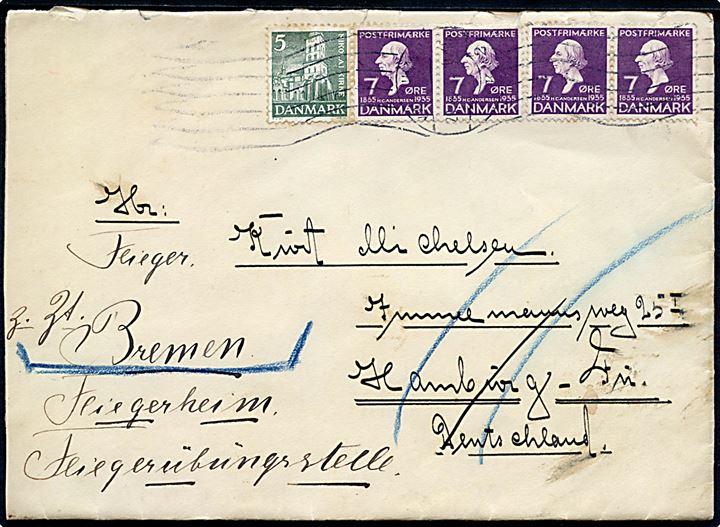 5 NIKOLAJ KIRKE DANMARK
POSTFRIMÆRKE 7 ØRE 1835 H.C. ANDERSEN 1935 DANMARK
POSTFRIMÆRKE 7 ØRE 1835 H.C. ANDERSEN 1935 DANMARK
POSTFRIMÆRKE 7 ØRE 1835 H.C. ANDERSEN 1935 DANMARK
POSTFRIMÆRKE 7 ØRE 1835 H.C. ANDERSEN 1935 DANMARK
Hr:
Flieger. Kurt Michelsen.
Immelmannsweg 25 I
Hamburg - Fu.
Deutschland.
z. Zt. Bremen.
Fliegerheim.
Fliegerübungsstelle.